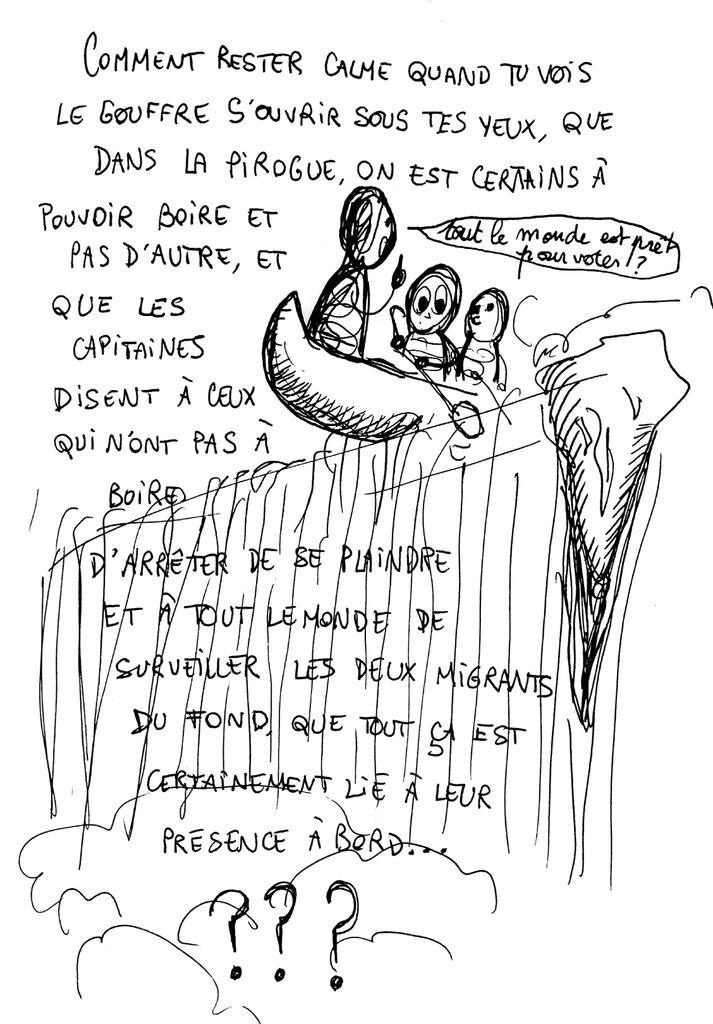 COMMENT RESTER CALME QUAND TU VOIS
LE GOUFFRE S'OUVRIR SOUS TES YEUX, QUE
DANS LA PIROGUE, ON EST CERTAINS À
POUVOIR BOIRE ET
PAS D'AUTRE, ET
QUE LES
CAPITAINES
DISENT À CEUX
QUI N'ONT PAS À
BOIRE
D'ARRÊTER DE SE PLAINDRE
ET À TOUT LE MONDE DE
SURVEILLER LES DEUX MIGRANTS
DU FOND, QUE TOUT ÇA EST
CERTAINEMENT LIÉ À LEUR
PRÉSENCE À BORD...
???
tout le monde est prêt
pour voter!?